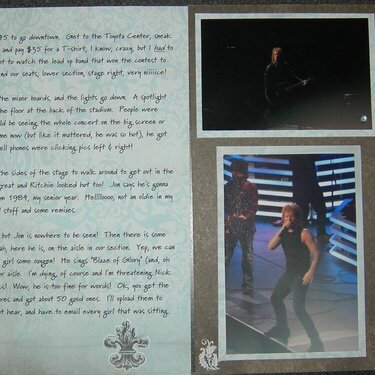 $5 to go downtown. Get to the Toyota Center, sneak
and pay $35 for a T-shirt, I know, crazy, but I had to
got to watch the lead up band that won the contest to
nd our seats; lower section, stage right, very niiiice!
the mixer boards, and the lights go down. A spotlight
the floor at the back of the stadium. People were
ld be seeing the whole concert on the big screen or
me now (but like it mattered, he was so hot), he got
ell phones were clicking pics left & right!
the sides of the stage to walk around to get out in the
great and Ritchie looked hot too! Jon says he's gonna
m 1984, my senior year. Hellllooo, not an oldie in my
d stuff and some remixes.
but Jon is nowhere to be seen! Then there is some
ah, here he is, on the aisle in our section. Yep, we can
girl some oxygen! He sings "Blaze of Glory" (and, oh
r aisle. I'm dying, of course and I'm threatening Nick
s! Wow, he is too fine for words! Ok, you got the
res and got about 50 good ones. I'll upload them to
t hear, and have to email every girl that was sitting